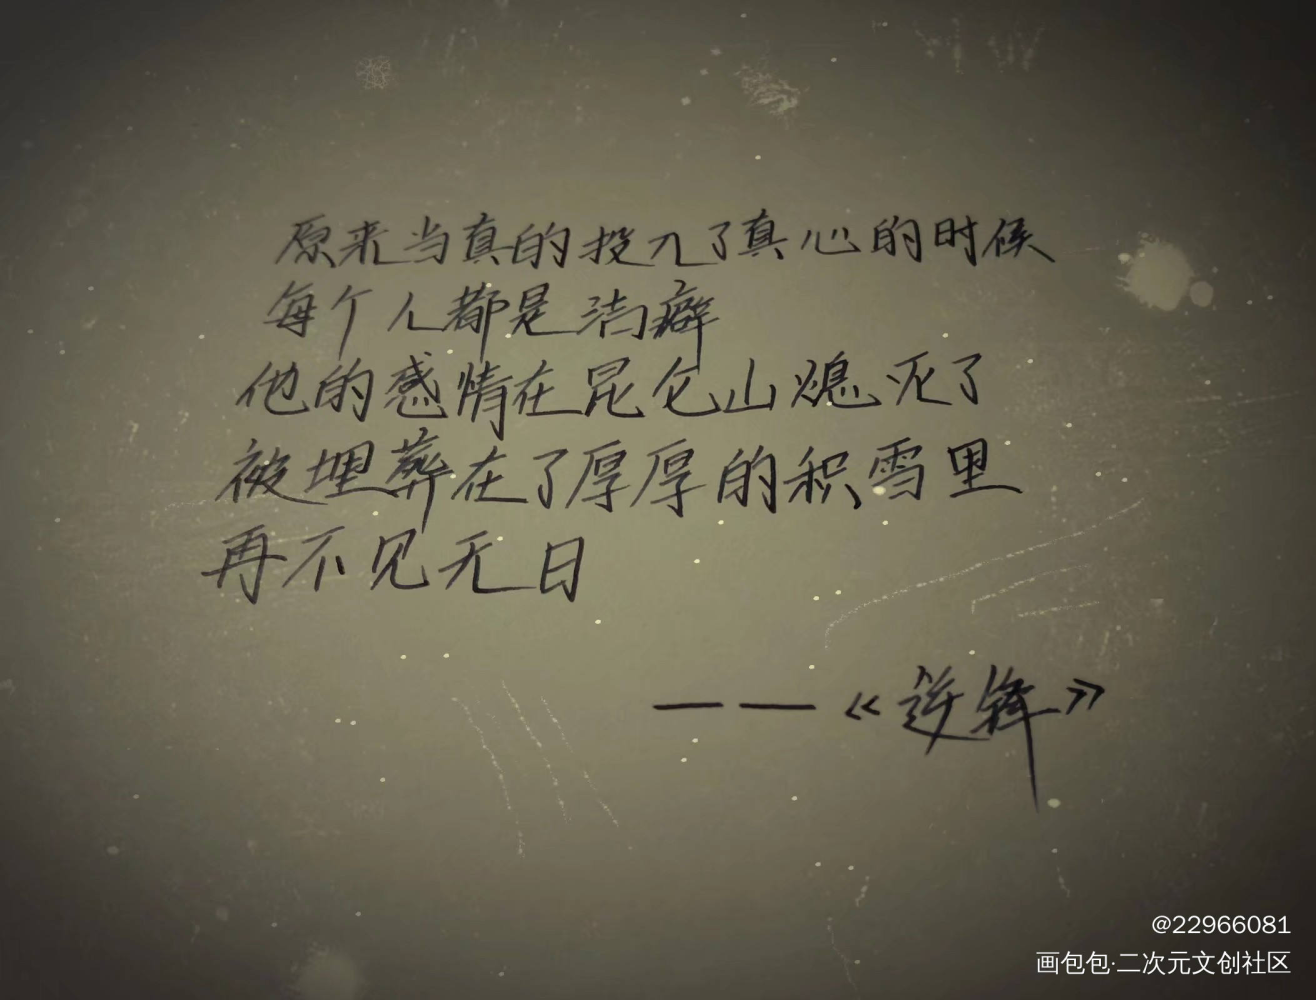 原来当真的投入了真心的时候
每个人都是洁癖
他的感情在昆仑山熄灭了
被埋葬在了厚厚的积雪里
再不见天日
——《逆锋》
@22966081
画包包·二次元文创社区